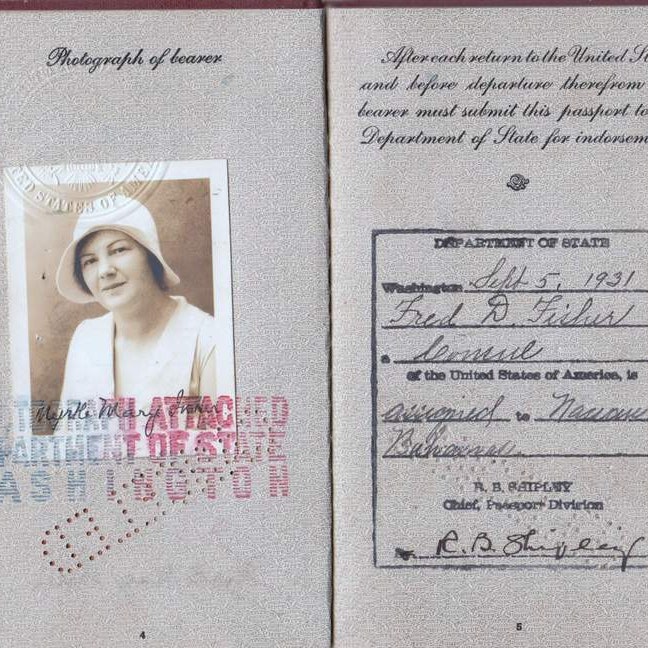 Photograph of bearer
ED STATES OF AME
Myrtle Mary
GRAPH ATTACHED
PARTMENT OF STATE
ASHINGTON
4
After each return to the United St
and before departure therefrom
bearer must submit this passport to
Department of State for indorsem
DEPARTMENT OF STATE
Washington Sept 5, 1931
Fred D. Fisher
a Consul
of the United States of America, is
assigned to Nassau
Bahamas.
R. B. SHIPLEY
Chief, Passport Division
R. B. Shipley
5